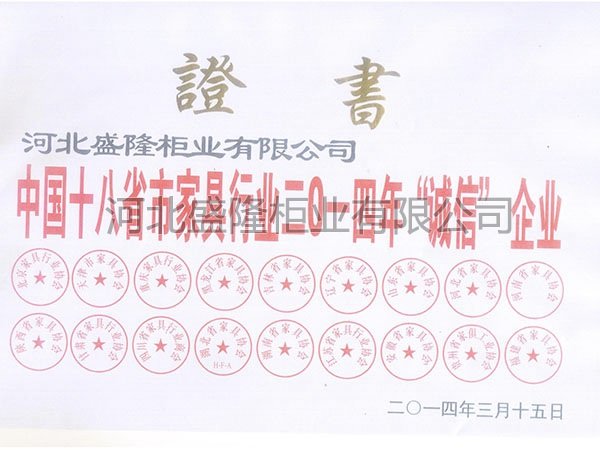 證 書
河北盛隆柜业有限公司
中国十八省市家具行业二〇一四年“诚信”企业
河北盛隆柜业有限公司
北京家具行业协会 天津市家具协会 重庆家具行业协会 黑龙江省家具协会 吉林省家具协会 辽宁省家具协会 山东省家具协会 河北省家具协会 河南省家具协会
陕西省家具协会 甘肃省家具行业协会 四川省家具行业商会 湖北省家具协会 H·F·A 湖南省家具协会 江苏省家具行业协会 安徽省家具协会 贵州省家俱工业协会 福建省家具协会
二〇一四年三月十五日